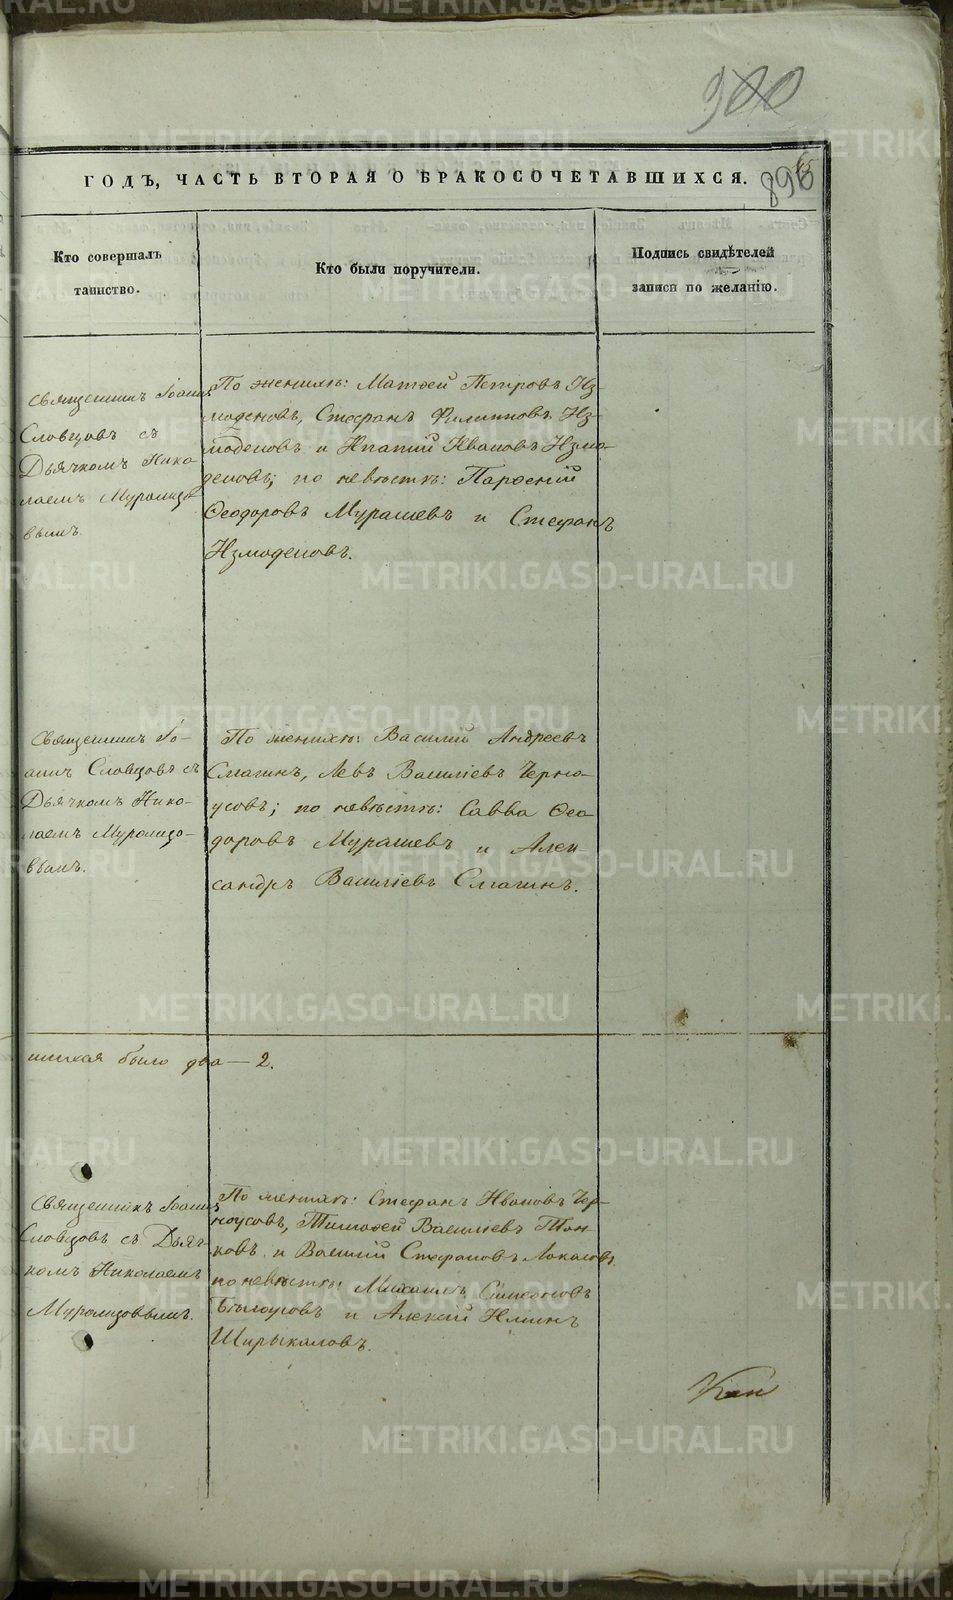 900
896
ГОДЪ, ЧАСТЬ ВТОРАЯ О БРАКОСОЧЕТАВШИХСЯ.
Кто совершалъ
таинство.
Кто были поручители.
Подпись свидѣтелей
записи по желанію.
Священникъ Іоаннъ
Словцовъ съ
Дьячкомъ Нико-
лаемъ Муромцо-
вымъ.
По женихѣ: Матѳей Петровъ Из-
моденовъ, Стефанъ Филипповъ Из-
моденовъ и Ипатій Ивановъ Измо-
деновъ; по невѣстѣ: Парѳеній
Ѳеодоровъ Мурашевъ и Стефанъ
Измоденовъ.
Священникъ Іо-
аннъ Словцовъ съ
Дьячкомъ Нико-
лаемъ Муромцо-
вымъ.
По женихѣ: Василій Андреевъ
Смагинъ, Левъ Василіевъ Черно-
усовъ; по невѣстѣ: Савва Ѳео
доровъ Мурашевъ и Алек
сандръ Василіевъ Смагинъ.
было два — 2.
Священникъ Іоаннъ
Словцовъ съ Дьяч-
комъ Николаемъ
Муромцовымъ.
По женихѣ: Стефанъ Ивановъ Чер-
ноусовъ, Тимоѳей Василіевъ
и Василій Стефановъ
по невѣстѣ: Михаилъ Симеоновъ
Бѣлоусовъ и Алексій Ильинъ
Ширыкаловъ.
METRIKI.GASO-URAL.RU